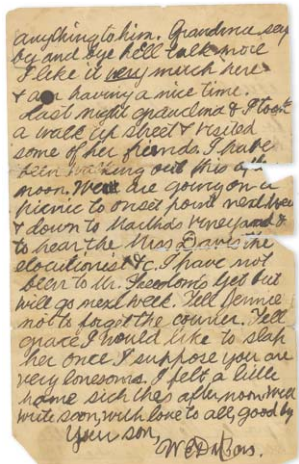 anything to him. Grandma says
by and bye he'll talk more
I like it very much here
& am having a nice time.
Last night grandma & I took
a walk up street & visited
some of her friends. I have
been walking out this after
noon. We are going on a
picnic to onset point next week
& down to Marthas Vineyard &
to hear the Miss Davis the
elocutionist &c. I have not
been to Mr. Freedom's yet but
will go next week. Tell Jennie
not to forget the courier. Tell
grace I would like to slap
her once I suppose you are
very lonesome. I felt a little
home sick this afternoon. Will
write soon, with love to all, good by
Your son,
W E DuBois.